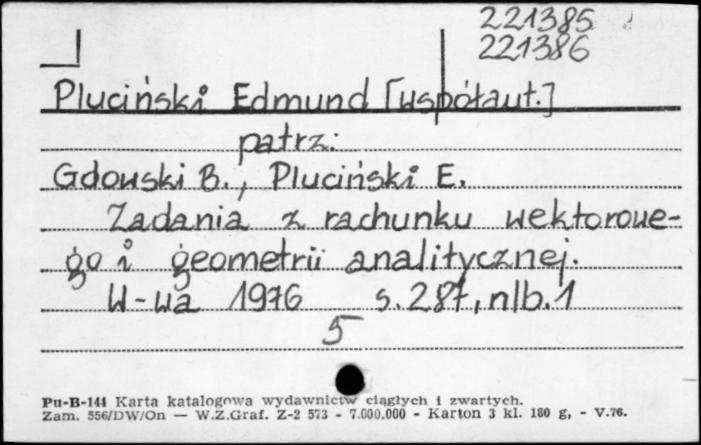 221385
221386
Pluciński Edmund [współaut.]
patrz:
Gdowski B., Pluciński E.
Zadania z rachunku wektorowe-
go i geometrii analitycznej.
W-wa 1976 s. 287, nlb. 1
5
Pu-B-144 Karta katalogowa wydawnictw ciągłych i zwartych.
Zam. 556/DW/On — W.Z.Graf. Z-2 573 - 7.000.000 - Karton 3 kl. 180 g, - V.76.